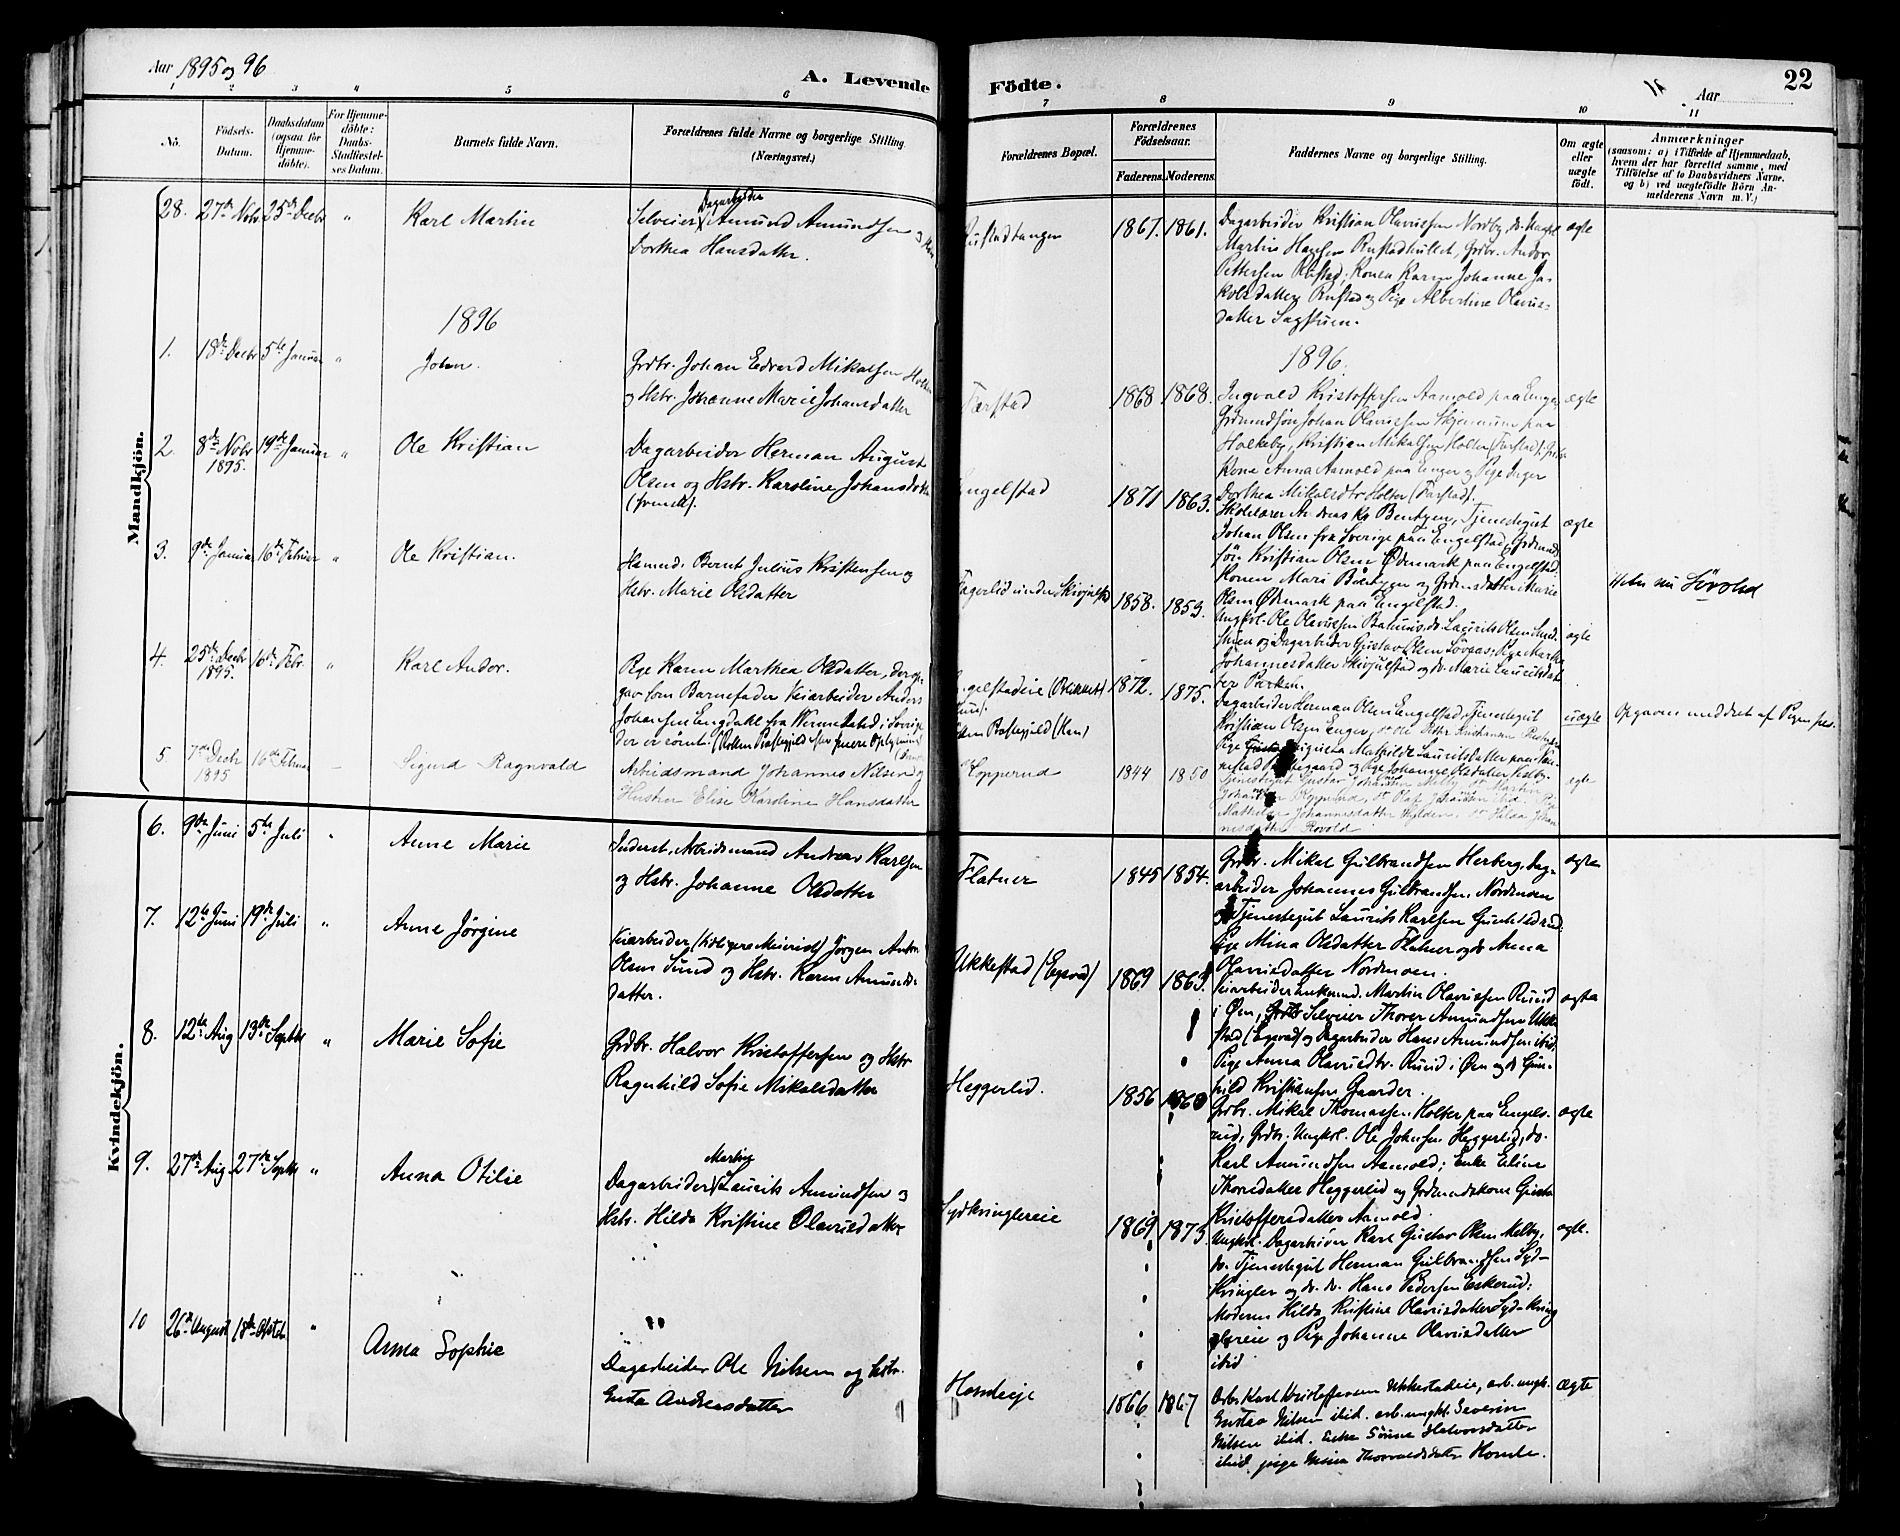 Aar 1895 og 96
A. Levende Födte.
Aar
22
1 2 3 4 5 6 7 8 9 10 11
No.
Födsels-
Datum.
Daabsdatum
(ogsaa for
Hjemme-
döbte).
For Hjemme-
döbte:
Daabs-
Stadfæstel-
ses Datum.
Barnets fulde Navn.
Forældrenes fulde Navne og borgerlige Stilling
(Næringsvei.)
Forældrenes Bopæl.
Forældrenes
Födselsaar.
Faderens. Moderens.
Faddernes Navne og borgerlige Stilling.
Om ægte
eller
uægte
födt.
Anmærkninger
(saasom: a) i Tilfælde af Hjemmedaab,
hvem der har forrettet samme, med
Tilföielse af to Daabsvidners Navne,
og b) ved uægtefödte Börn An-
melderens Navn m. V.)
Mandkjön.
28. 27de Novbr 25de Decbr " Karl Martin
Dagarbeider
Selveier Amund Amundsen og
Dorthea Hansdatter.
Rustadtangen 1867. 1861.
Dagarbeider Kristian Olavissen Nordby, do. Ungkl.
Martin Hansen Rustadhullet, Grdbr. Andor
Pettersen Rustad, Konen Karen Johanne Ja-
kobsdatter Rustad og Pige Albertine Olavis-
datter Sagstuen.
ægte
1896
1896.
1. 18de Decbr 5te Januar " Johan.
Grdbr. Johan Edvard Mikalsen Holter
og Hstr. Johanne Marie Johansdatter
Farstad 1868 1868.
Ingvald Kristoffersen Aamold paa Enger,
Grdmandssön Johan Olavissen Skjennum paa
Holkeby, Kristian Mikalsen Holter (Farstad).
Kone Anna Aamold paa Enger og Pige Inger
Dorthea Mikalsdtr Holter (Farstad).
ægte
2. 8de Novbr 1895. 19de Januar " Ole Kristian
Dagarbeider Herman August
Olsen og Hstr. Karoline Johansdatter
(svensk).
Engelstad 1871 1863.
Skolelærer Andreas Kr. Bentzen, Tjenestegut
Johan Olsen fra Sverige paa Engelstad, Grdmands-
sön Kristian Olsen Ødemark paa Engelstad,
Konen Mari Bentzen og Grdmdsdatter Marie
Olsen Ødemark paa Engelstad.
ægte
3. 9de Januar 16de Februar " Ole Kristian.
Husmd. Bernt Julius Kristensen og
Hstr. Marie Olsdatter
Fagerlid under Skivjulstad 1858. 1859.
Ungkl. Ole Olavissen Basmus, do. Laurits Olsen
og Dagarbeider Gustav Olsen Lövaas; Pige Martha
Johannesdatter Skivjulstad og do. Marie Lauritsdat-
ter Parken.
ægte
Heter nu Lövolsd
4. 25de Decbr 1895. 16de Febr. " Karl Andor.
Pige Karen Marthea Olsdatter, der op-
gav som Barnefader Veiarbeider Anders
Johansen Engdahl fra Wermeland i Sverige
der er römt.
Engelstadeie 1872. 1875.
Dagarbeider Herman Olsen Engelstad, Tjenestegut
Kristian Olsen Enger,
Pige Augusta Mathilde Lauritsdatter
og Pige Johanne Olsdatter
uægte
Opgaven meddelt af Pigen selv.
5 7de Decb 1895 16de Februar – Sigurd Ragnvald
Arbeidsmand Johannes Nilsen og
Hustru Elise Karoline Hansdatter
Kopperud 1844 1850
Tjenestegut Gustav Johansen Melby, Martin
Johansen Kopperud, dt Olaf Johansen ibid. Pige
Mathilde Johannesdatter Kylden, dt Hilda Johan-
nesdatter Rovold
egte
Kvindekjön.
6. 9de Juni 5te Juli " Anne Marie
Inderst, Arbeidsmand Andreas Karlsen
og Hstr. Johanne Olsdatter
Flatner 1845 1854.
Grdbr. Mikal Gulbrandsen Herberg, Dag-
arbeider Johannes Gulbrandsen Nordmoen
og Tjenestegut Laurits Karlsen
Pige Mina Olsdatter Flatner og do Anna
Olavisdatter Nordmoen.
ægte
7. 12te Juni 19de Juli " Anne Jörgine
Veiarbeider, (tidligere Meierist) Jörgen Anton
Olsen Lund og Hstr. Karen Amunds-
datter.
Ukkestad (Egsvad) 1869 1863.
Veiarbeider Enkemd. Martin Olavissen Ruud
i Øen, Selveier Thorer Amundsen Ukke-
stad (Egsvad) og Dagarbeider Hans Amundsen ibid;
Pige Anna Olavisdtr. Ruud i Øen og do Gun-
hild Kristiansen Gaarder.
ægte
8. 12te Aug 13de Septbr " Marie Sofie
Grdbr. Halvor Kristoffersen og Hstr
Ragnhild Sofie Mikalsdatter
Heggerlid. 1856 1860
Grdbr. Mikal Thomassen Holter paa Engels-
rud, Grdbr. Ungkl. Ole Johnsen Heggerlid, do.
Karl Amundsen Aamold; Enke Eline
Thorsdatter Heggerlid og Grdmandskone Gusta
Kristoffersdatter Aamold.
ægte
9. 27de Aug 27de Septbr " Anna Otilie
Martin
Dagarbeider Laurits Amundsen og
Hstr. Hilda Kristine Olavisdatter
Sydkringlereie 1869 1873
Ungkl. Dagarbeider Karl Gustav Olsen Melby,
do. Tjenestegut Herman Gulbrandsen Syd-
Kringler og do. do. Hans Pedersen Eskerud;
Moderen Hilda Kristine Olavisdatter Syd-Kring-
lereie og Pige Johanne Olavisdatter
ibid
ægte.
10 26de August 18de Oktob. " Anna Sophie
Dagarbeider Ole Nilsen og Hstr.
Gusta Andreasdatter
Homleeje 1866 1867
Arb. Karl Kristoffersen Ukkestadeie, arb. ungk.
Gustav Nilsen ibid. arb. ungkl. Severin
Nilsen ibid. Enke Sörine Halvorsdatter
ibid. pige Mina Thorvaldsdatter Homle.
Ægte